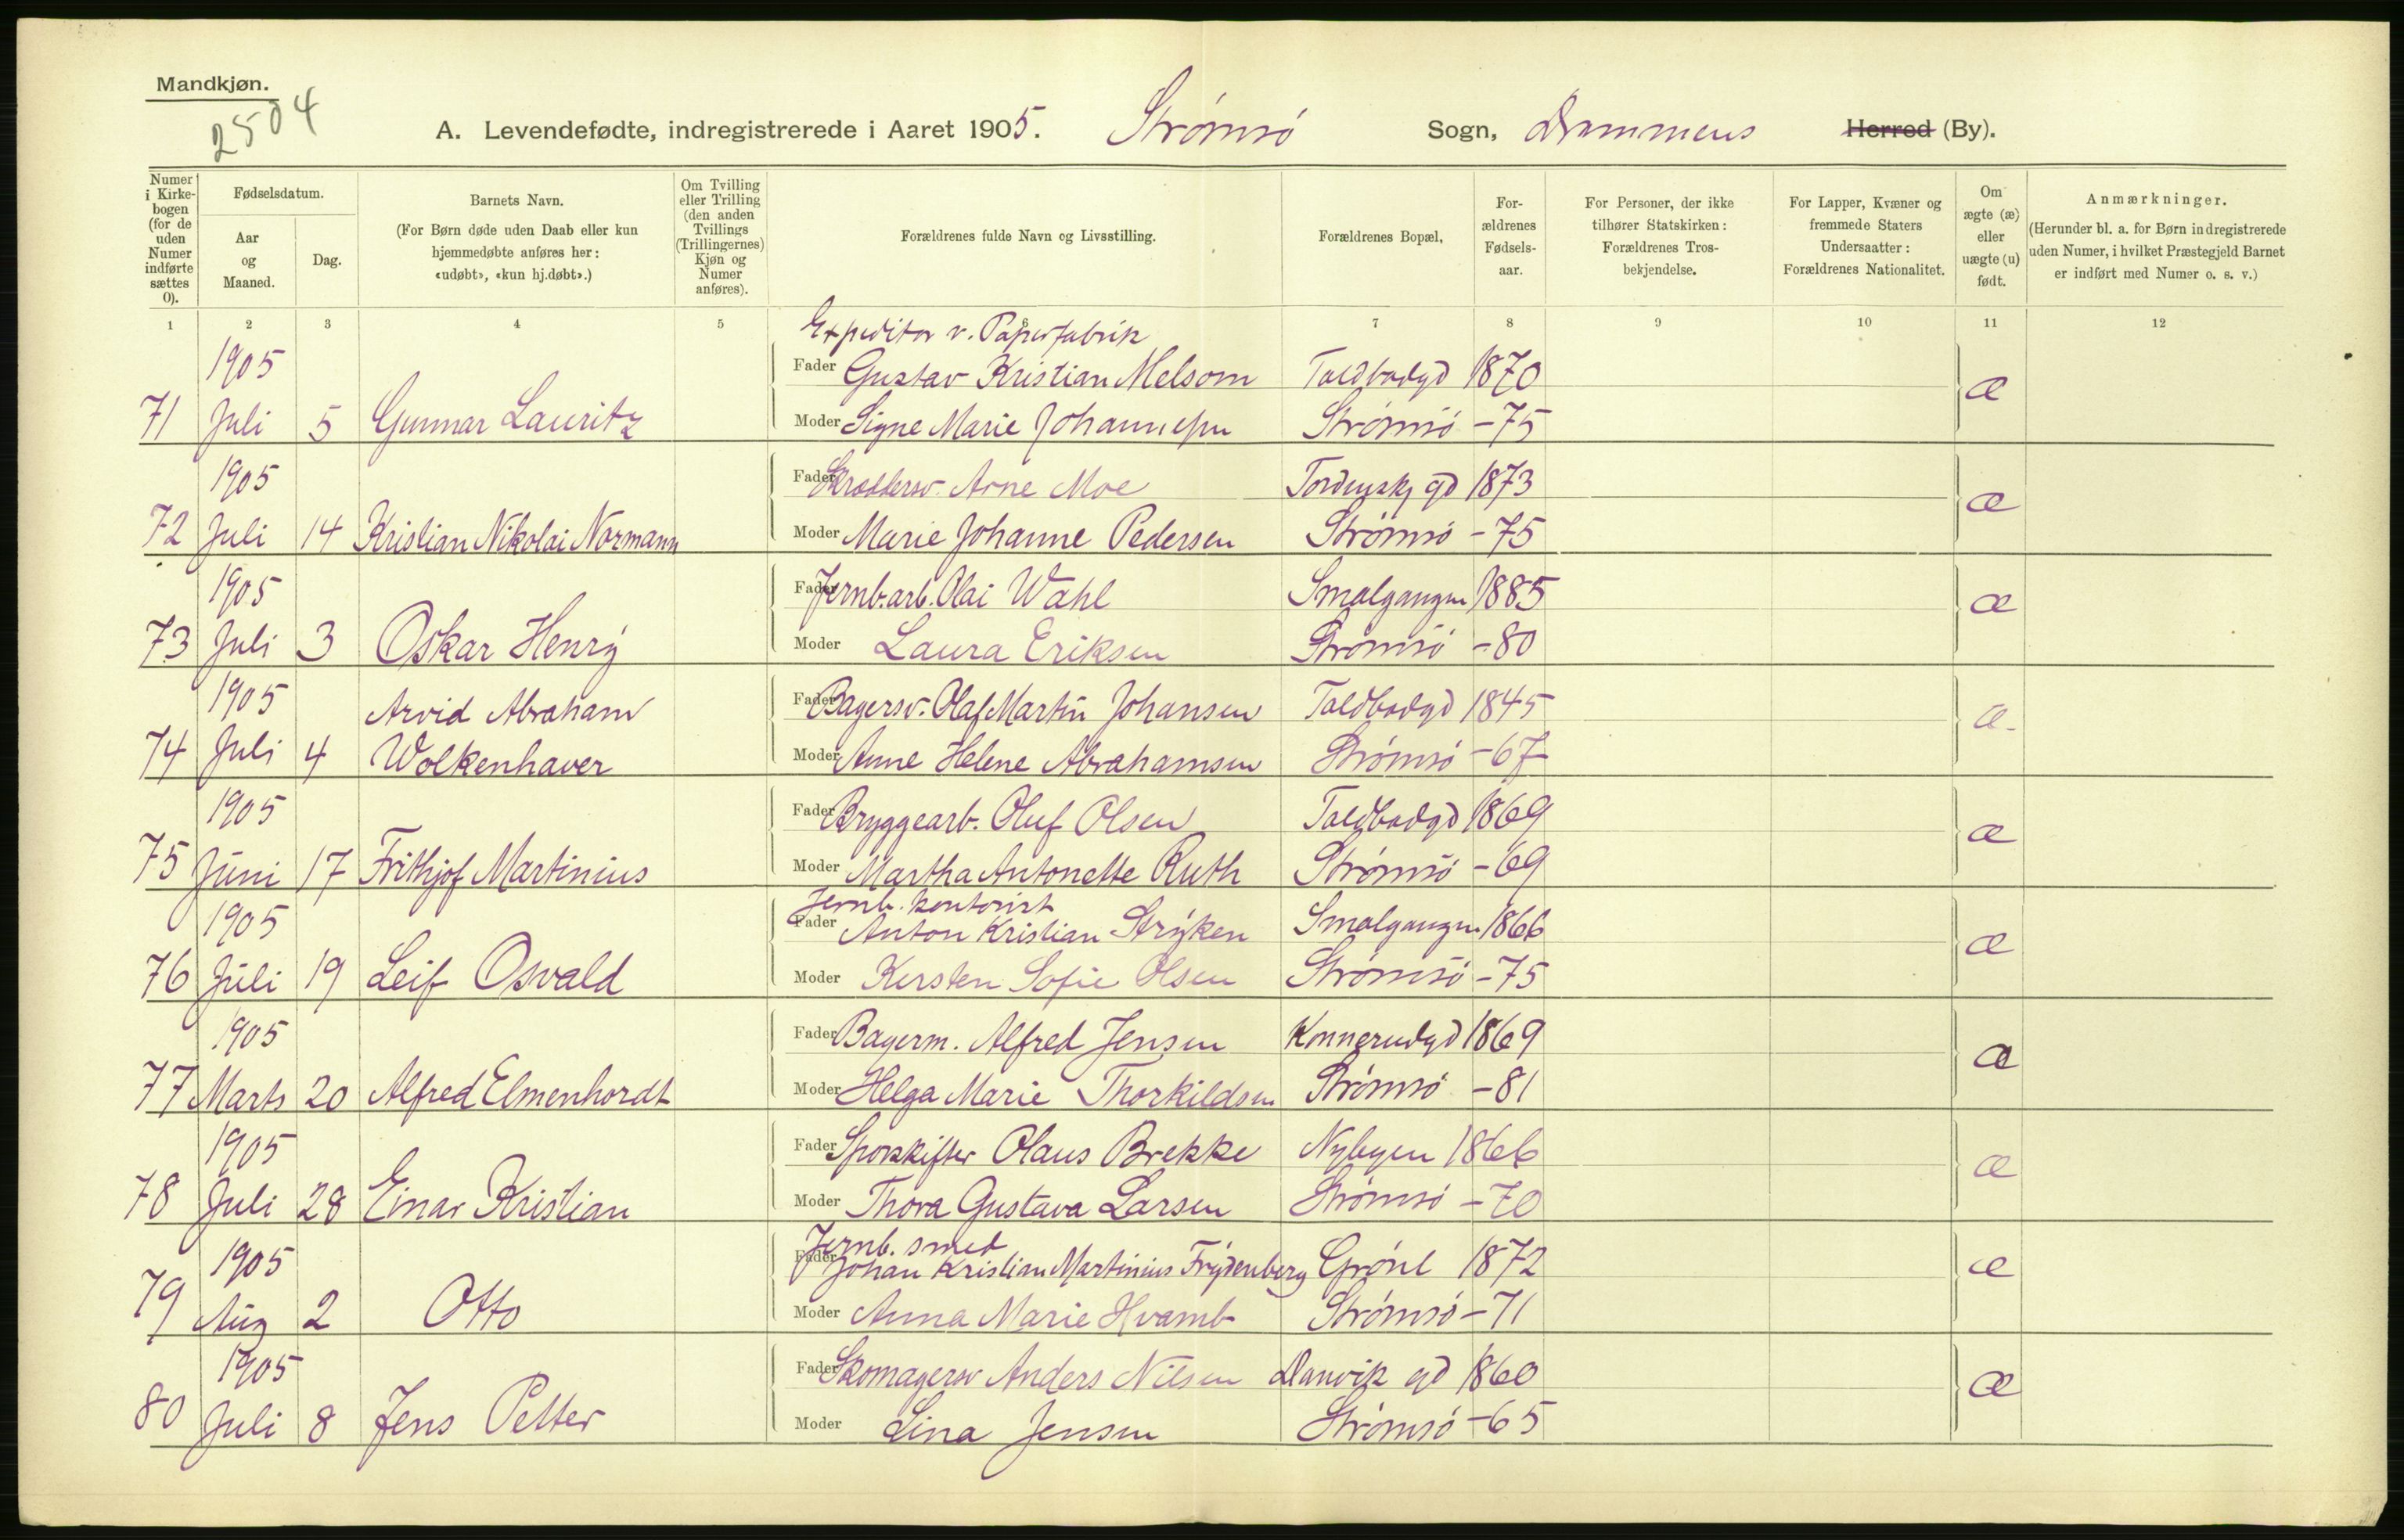 Mandkjøn.
2504
A. Levendefødte, indregistrerede i Aaret 1905. Strømsø Sogn, Drammens Herred (By).
Numer i Kirkebogen (for de uden Numer indførte sættes 0).
Fødselsdatum.
Aar og Maaned.
Dag.
Barnets Navn.
(For Børn døde uden Daab eller kun hjemmedøbte anføres her: «udøbt», «kun hj.døbt».)
Om Tvilling eller Trilling (den anden Tvillings (Trillingernes) Kjøn og Numer anføres).
Forældrenes fulde Navn og Livsstilling.
Forældrenes Bopæl,
Forældrenes Fødselsaar.
For Personer, der ikke tilhører Statskirken: Forældrenes Trosbekjendelse.
For Lapper, Kvæner og fremmede Staters Undersaatter: Forældrenes Nationalitet.
Om ægte (æ) eller uægte (u) født.
Anmærkninger.
(Herunder bl. a. for Børn indregistrerede uden Numer, i hvilket Præstegjeld Barnet er indført med Numer o. s. v.)
1 2 3 4 5 6 7 8 9 10 11 12
Expeditør v. Papirfabrik
1905 Fader Gustav Kristian Melsom Toldbodgd 1870 æ
71 Juli 5 Gunnar Lauritz Moder Signe Marie Johannesen Strømsø -75
1905 Fader Skræddersv. Arne Moe Tordenskj gd 1873 æ
72 Juli 14 Kristian Nikolai Normann Moder Marie Johanne Pedersen Strømsø -75
1905 Fader Jernb.arb. Olai Wahl Smalgangen 1885 æ
73 Juli 3 Oskar Henry Moder Laura Eriksen Strømsø -80
1905 Arvid Abraham Fader Bagersv. Olaf Martin Johansen Toldbodgd 1845 æ
74 Juli 4 Wolkenhaver Moder Anne Helene Abrahamsen Strømsø -67
1905 Fader Bryggearb. Oluf Olsen Toldbodgd 1869 æ
75 Juni 17 Frithjof Martinius Moder Martha Antonette Ruth Strømsø -69
Jernb. kontorist
1905 Fader Anton Kristian Stryken Smalgangen 1866 æ
76 Juli 19 Leif Osvald Moder Kersten Sofie Olsen Strømsø -75
1905 Fader Bagerm. Alfred Jensen Konnerudgd 1869 æ
77 Marts 20 Alfred Elmenhordt Moder Helga Marie Thorkildsen Strømsø -81
1905 Fader Sporskifter Olaus Brekke Nybyen 1866 æ
78 Juli 28 Einar Kristian Moder Thora Gustava Larsen Strømsø -70
Jernb. smed
1905 Fader Johan Kristian Martinius Frydenberg Grønl 1872 æ
79 Aug 2 Otto Moder Anna Marie Hvamb Strømsø -71
1905 Fader Skomagersv Anders Nilsen Danvik gd 1860 æ
80 Juli 8 Jens Petter Moder Lina Jensen Strømsø -65